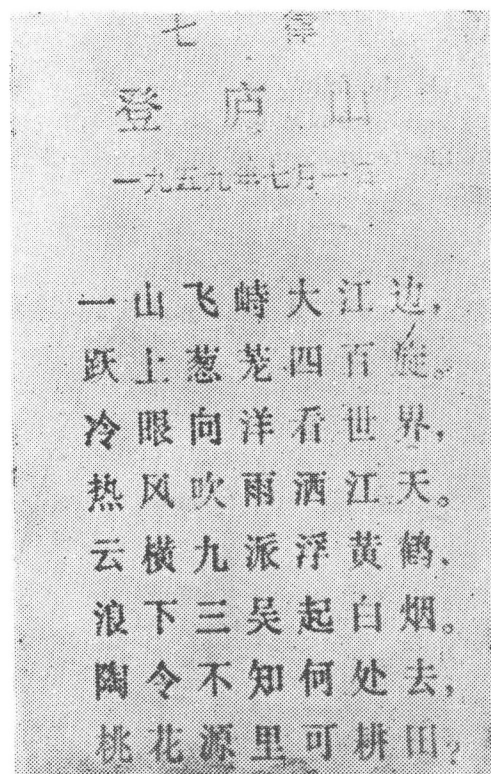 七 律
登 庐 山
一九五九年七月一日
一山飞峙大江边，
跃上葱茏四百旋。
冷眼向洋看世界，
热风吹雨洒江天。
云横九派浮黄鹤，
浪下三吴起白烟。
陶令不知何处去，
桃花源里可耕田？